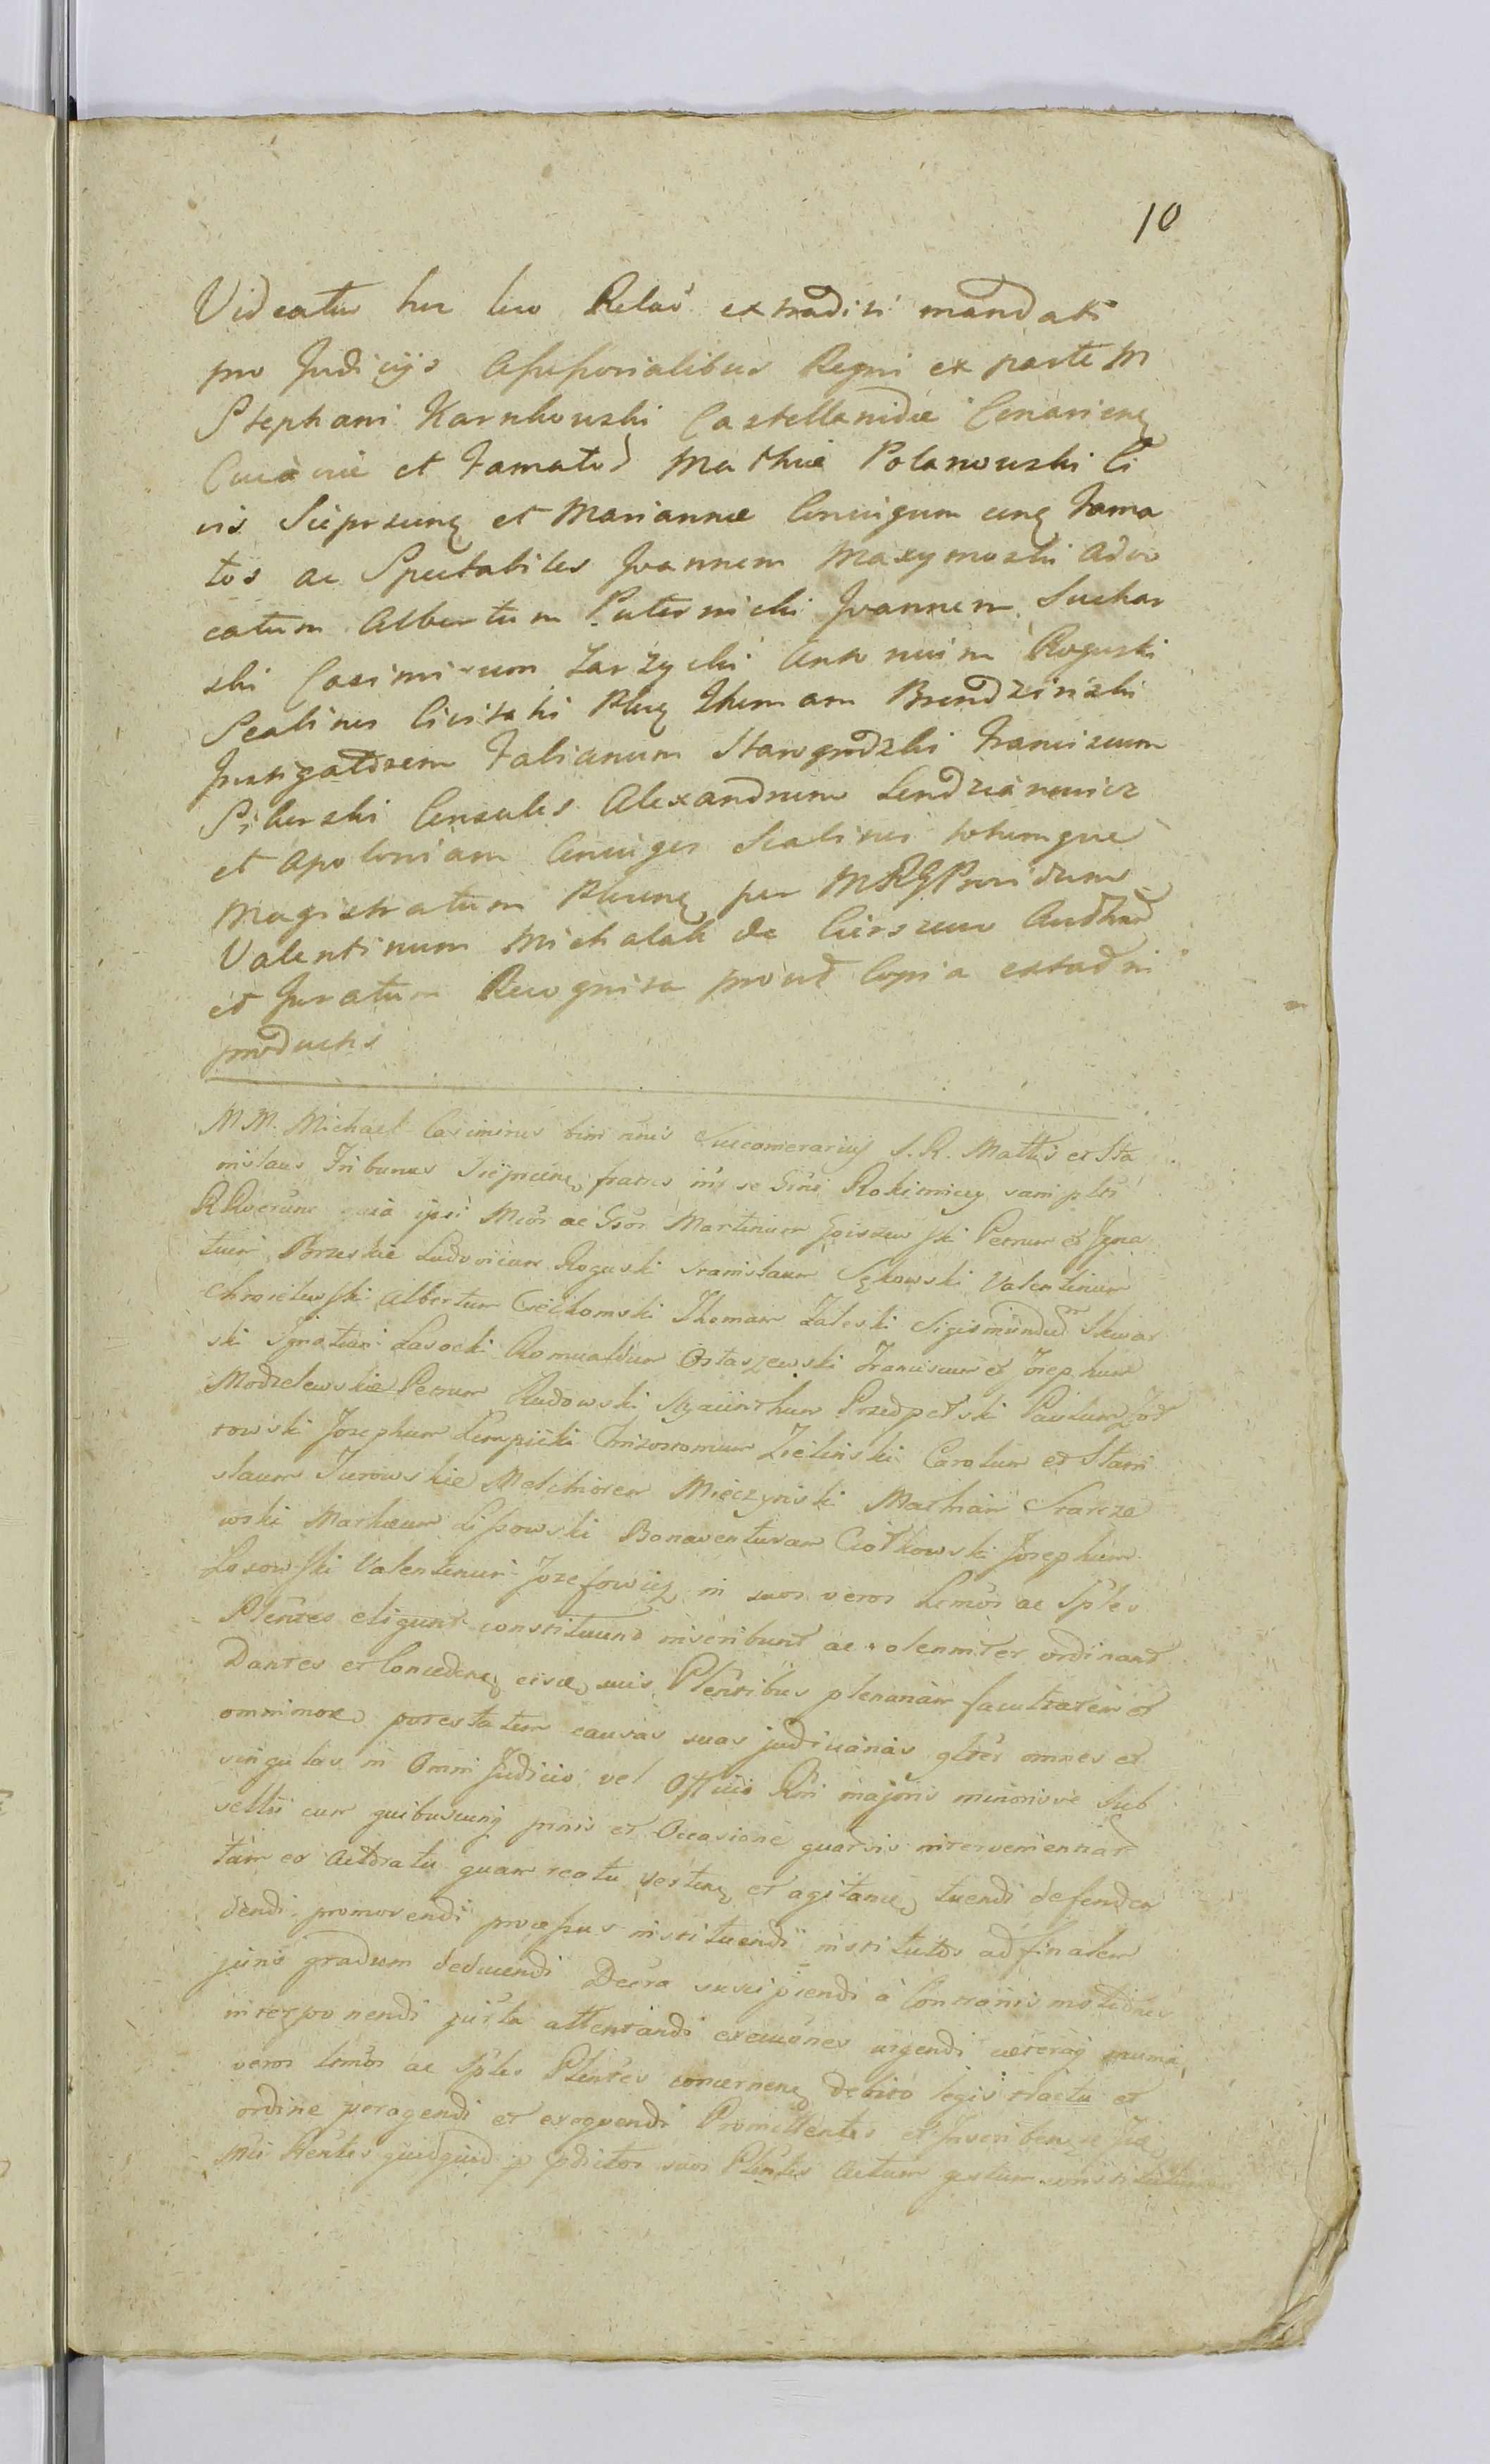 10
Videatur hic loco Relaõ extraditi mandati
pro Judicijs Assessorialibus Regni ex parte M
Stephani Karnkowski Castellanidæ Conariens
Cuiaviæ et Famatoȓ Mathiæ Polanowski Ci
vis Sieprscens et Mariannæ Coniugum cong Fama
tos ac Spectabiles Joannem Maxymoski Advo
catum Albertum Puternicki Joannem Suchar
ski Casimirum Zarzycki Antonium Roguski
Scabinos Civitatis Thomam Brendzinski
Instigatorem Fabianum Starogrodzki Franciscum
Sikorski Consules Alexandrum Lendzianowicz
et Apoloniam Coniuges Scabinos totumque
Magistratum per MRG Providum
Valentinum Michalak de
et Juratum Recognita prout Copia
producti
MM. Michael Casimirus Succamerarius S. R. Mattis et Sta
nislaus Tribunus fratres inter se Rokitniccy sani
quia ipsi ac Martinum Goiszewski Petrum et Igna
tium Brzeskie Ludovicum Roguski Stanislaum Sękowski Valentinum
Chrościewski Albertum Ciechomski Thomam Zaleski Sigismundum Skwar
ski Ignatium Lasocki Romualdum Ostaszewski Franciscum et Josephum
Modzelewskie Petrum Rudowski Hyacinthum Przedpełski Paulum
rowski Josephum Lempicki Chrizostomum Zieliński Carolum et Stani
slaum Turowskie Melchiorem Mięczyński Mathiam Starcze
wski Matheum Lissowski Bonaventuram Ciołkowski Josephum
Łosowski Valentinum Jozefowicz in suos veros Lemos ac Sples
Plentes eligunt constituunt inscribunt ac solenniter ordinant
Dantes et Concedens eisdem suis Plentibus plenariam facultatem et
omnimodam potestatem causas suas judiciarias glter omnes et
singulas in Omni Judicio vel Officio Rni majoris minorisve Sub
sellii cum quibuscunq prnis et Occasione quarvis intervenientiar
tam ex Actoratu quam reatu vertens et agitans tuendi defenden
dendi promovendi processus instituendi institutos ad finalem
juris gradum deducendi Decra suscipiendi à Contrariis motiones
interponendi juxta attentandi execuones urgendi cæteraq munia
veros Lemos ac Sples Plentes concernens debito legis tractu et
ordine peragendi et exequendi Promittentes et Inscribens se
quidquid p pdictos suos Plentes Actum gestum constitutum